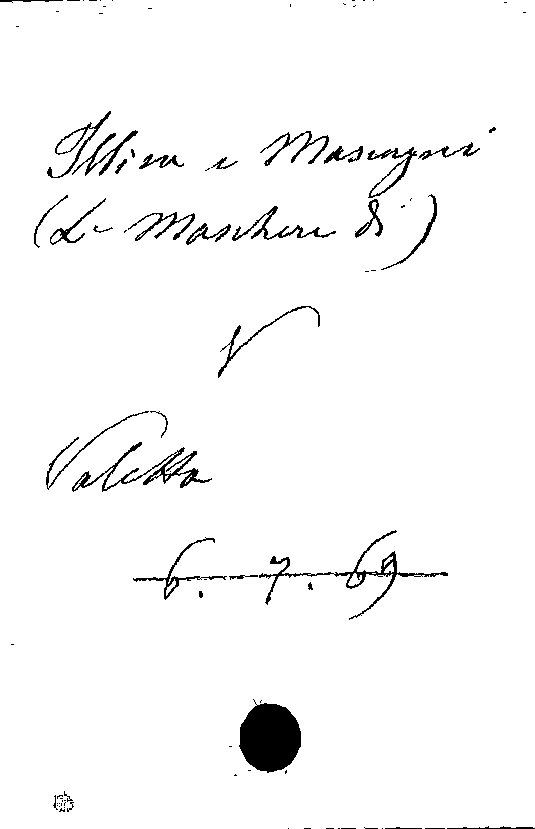 Illica e Mascagni
(Le Maschere di)
V
Valetta
6. 7. 69